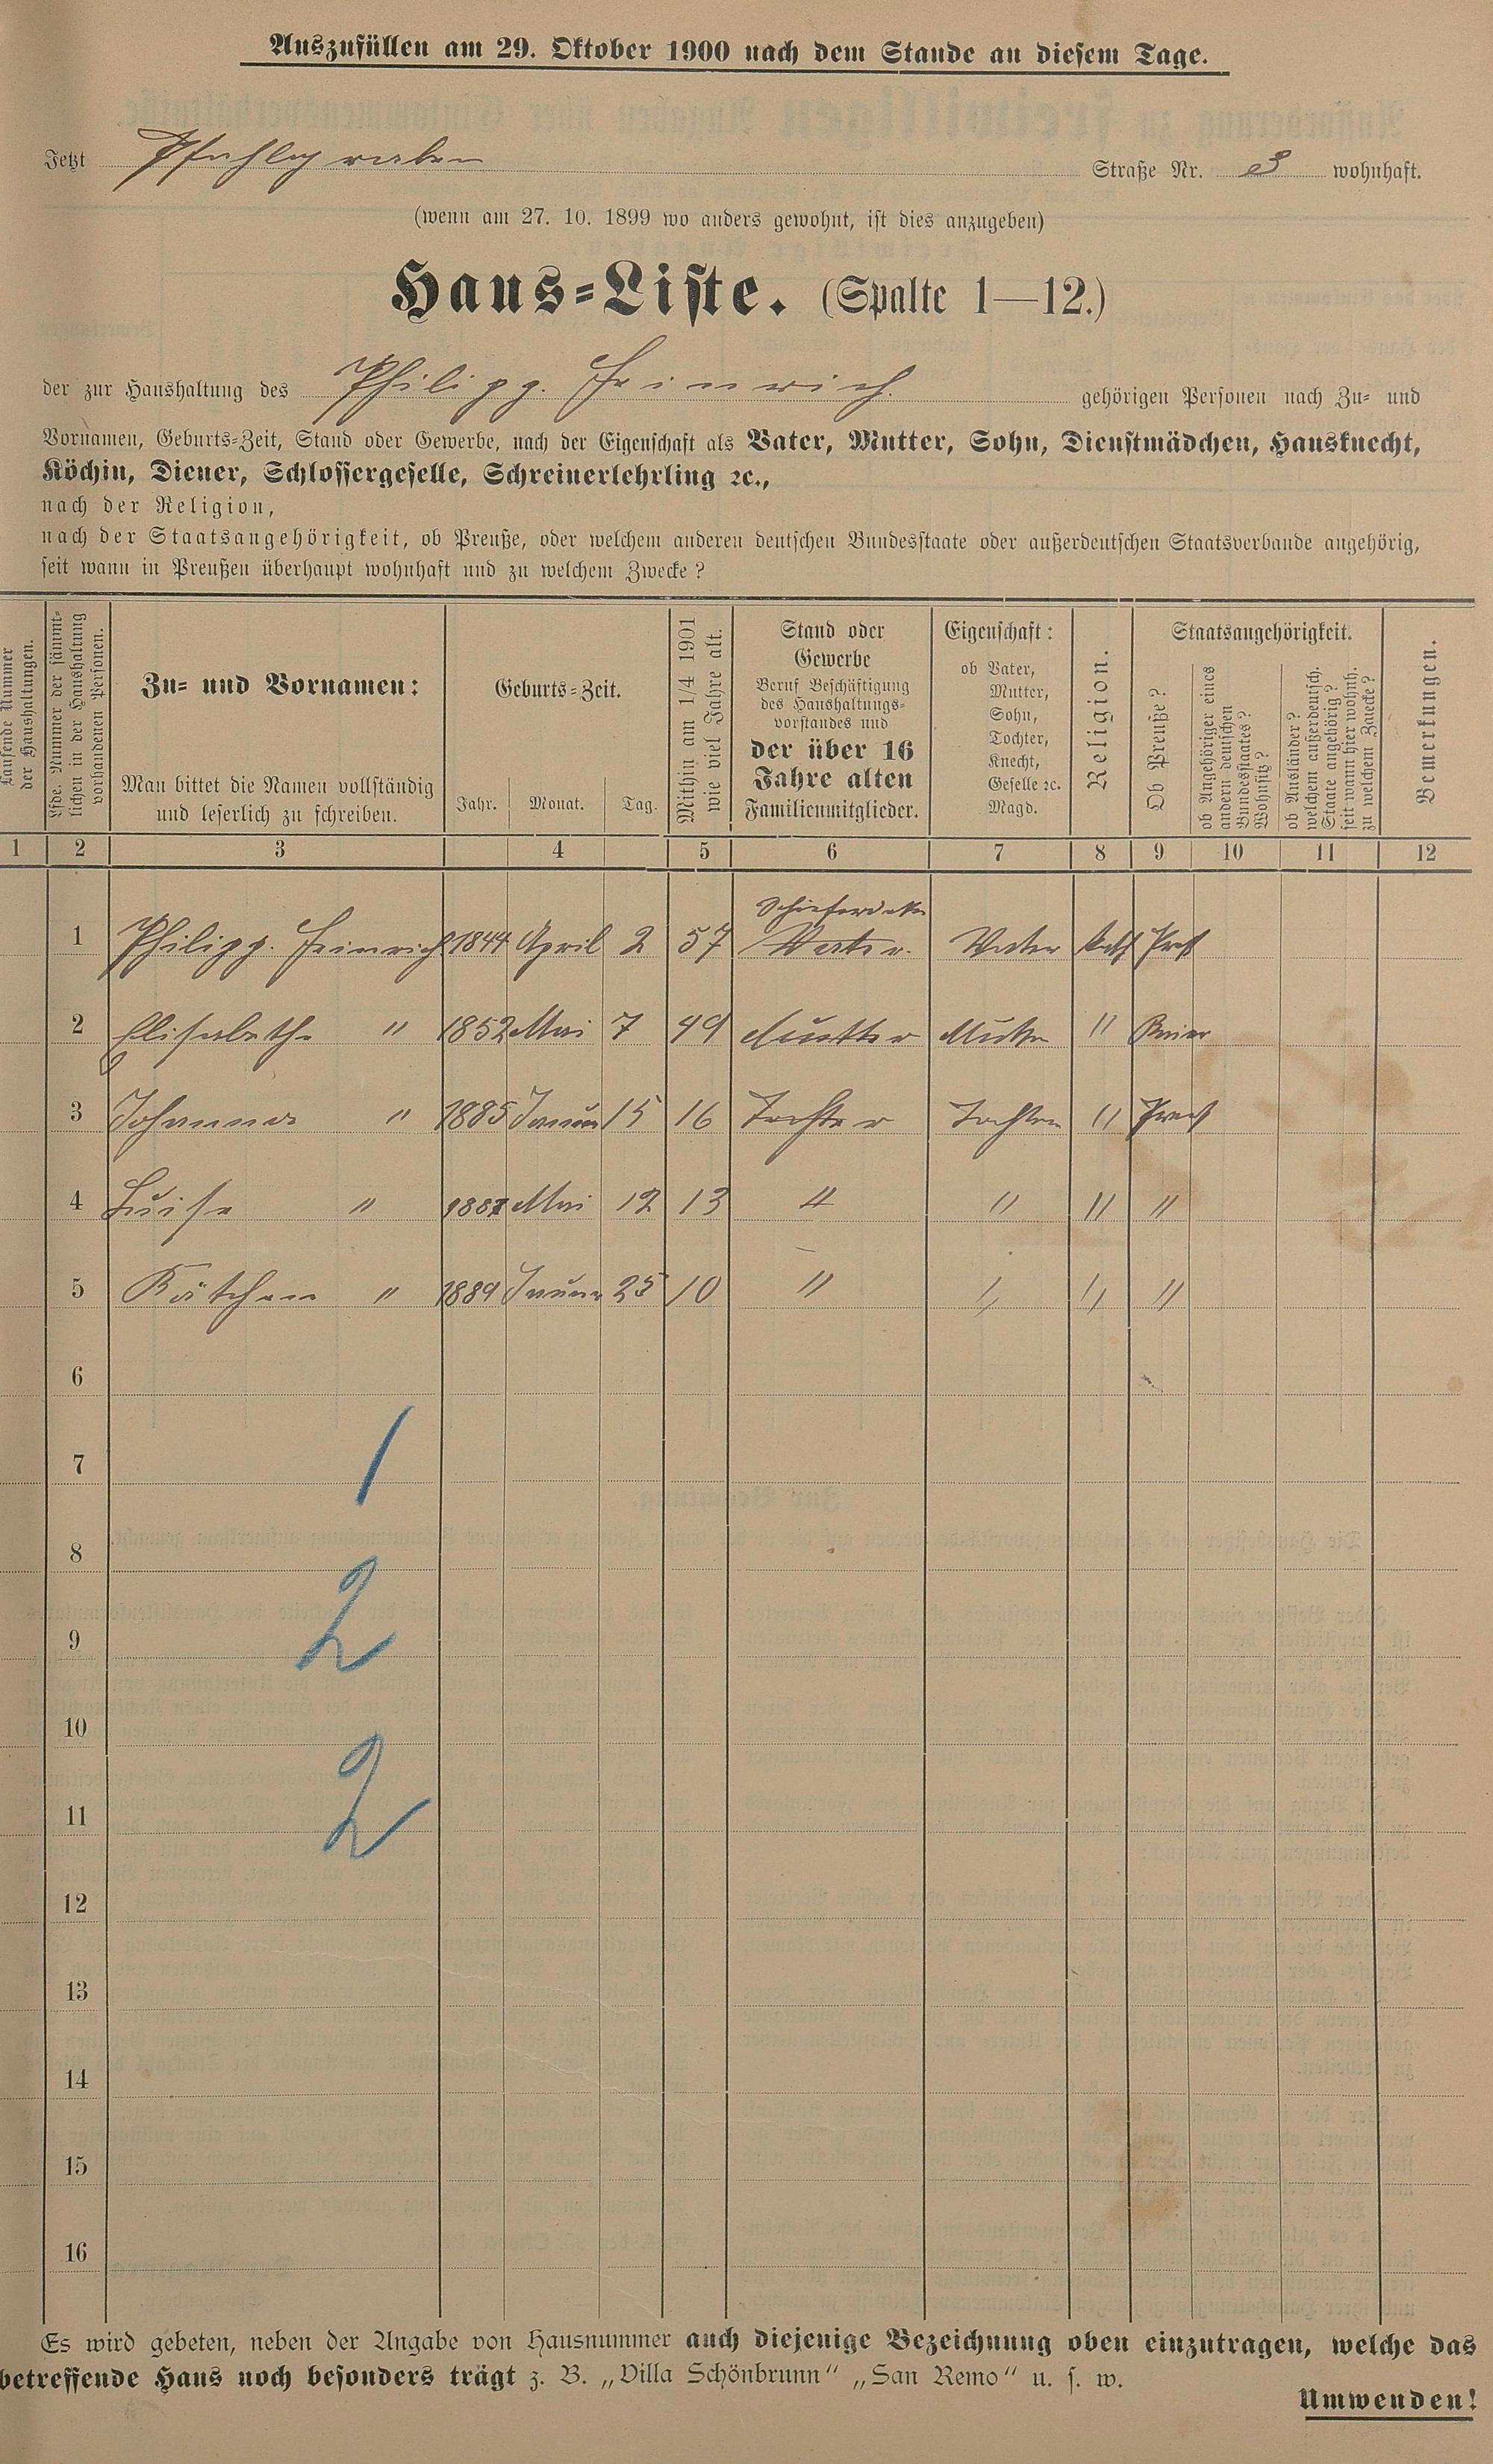 Auszufüllen am 29. Oktober 1900 nach dem Stande an diesem Tage.
Jetzt Pfahlgraben Straße Nr. 3 wohnhaft.
(wenn am 27. 10. 1899 wo anders gewohnt, ist dies anzugeben)
Haus-Liste. (Spalte 1—12.)
der zur Haushaltung des Philipp. Heinrich. gehörigen Personen nach Zu- und
Vornamen, Geburts-Zeit, Stand oder Gewerbe, nach der Eigenschaft als Vater, Mutter, Sohn, Dienstmädchen, Hausknecht,
Köchin, Diener, Schlossergeselle, Schreinerlehrling ꝛc.,
nach der Religion,
nach der Staatsangehörigkeit, ob Preuße, oder welchem anderen deutschen Bundesstaate oder außerdeutschen Staatsverbande angehörig,
seit wann in Preußen überhaupt wohnhaft und zu welchem Zwecke?
Laufende Nummer
der Haushaltungen.
Lfde. Nummer der sämmt-
lichen in der Haushaltung
vorhandenen Personen.
Zu- und Vornamen:
Man bittet die Namen vollständig
und leserlich zu schreiben.
Geburts-Zeit.
Jahr. Monat. Tag.
Mithin am 1/4 1901
wie viel Jahre alt.
Stand oder
Gewerbe
Beruf Beschäftigung
des Haushaltungs-
vorstandes und
der über 16
Jahre alten
Familienmitglieder.
Eigenschaft:
ob Vater,
Mutter,
Sohn,
Tochter,
Knecht,
Geselle ꝛc.
Magd.
Religion.
Staatsangehörigkeit.
Ob Preuße?
ob Angehöriger eines
andern deutschen
Bundesstaates?
Wohnsitz?
ob Ausländer?
welchem außerdeutsch.
Staate angehörig?
seit wann hier wohnh.
zu welchem Zwecke?
Bemerkungen.
1 2 3 4 5 6 7 8 9 10 11 12
Schieferdecker
1 Philipp. Heinrich 1844 April 2 57 Vater. Vater Kath
2 Elisabethe " 1852 Mai 7 49 Mutter Mutter " Baier
3 Johanna " 1885 Januar 15 16 Tochter Tochter "
4 Luise " Mai 12 13 " " " "
5 Kätchen " 1889 Januar 25 10 " " " "
6
7
1
8
9
2
10
11
2
12
13
14
15
16
Es wird gebeten, neben der Angabe von Hausnummer auch diejenige Bezeichnung oben einzutragen, welche das
betreffende Haus noch besonders trägt z. B. „Villa Schönbrunn“ „San Remo“ u. s. w.
Umwenden!